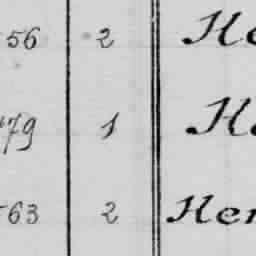 56 2 He
79 1 He
63 2 Her